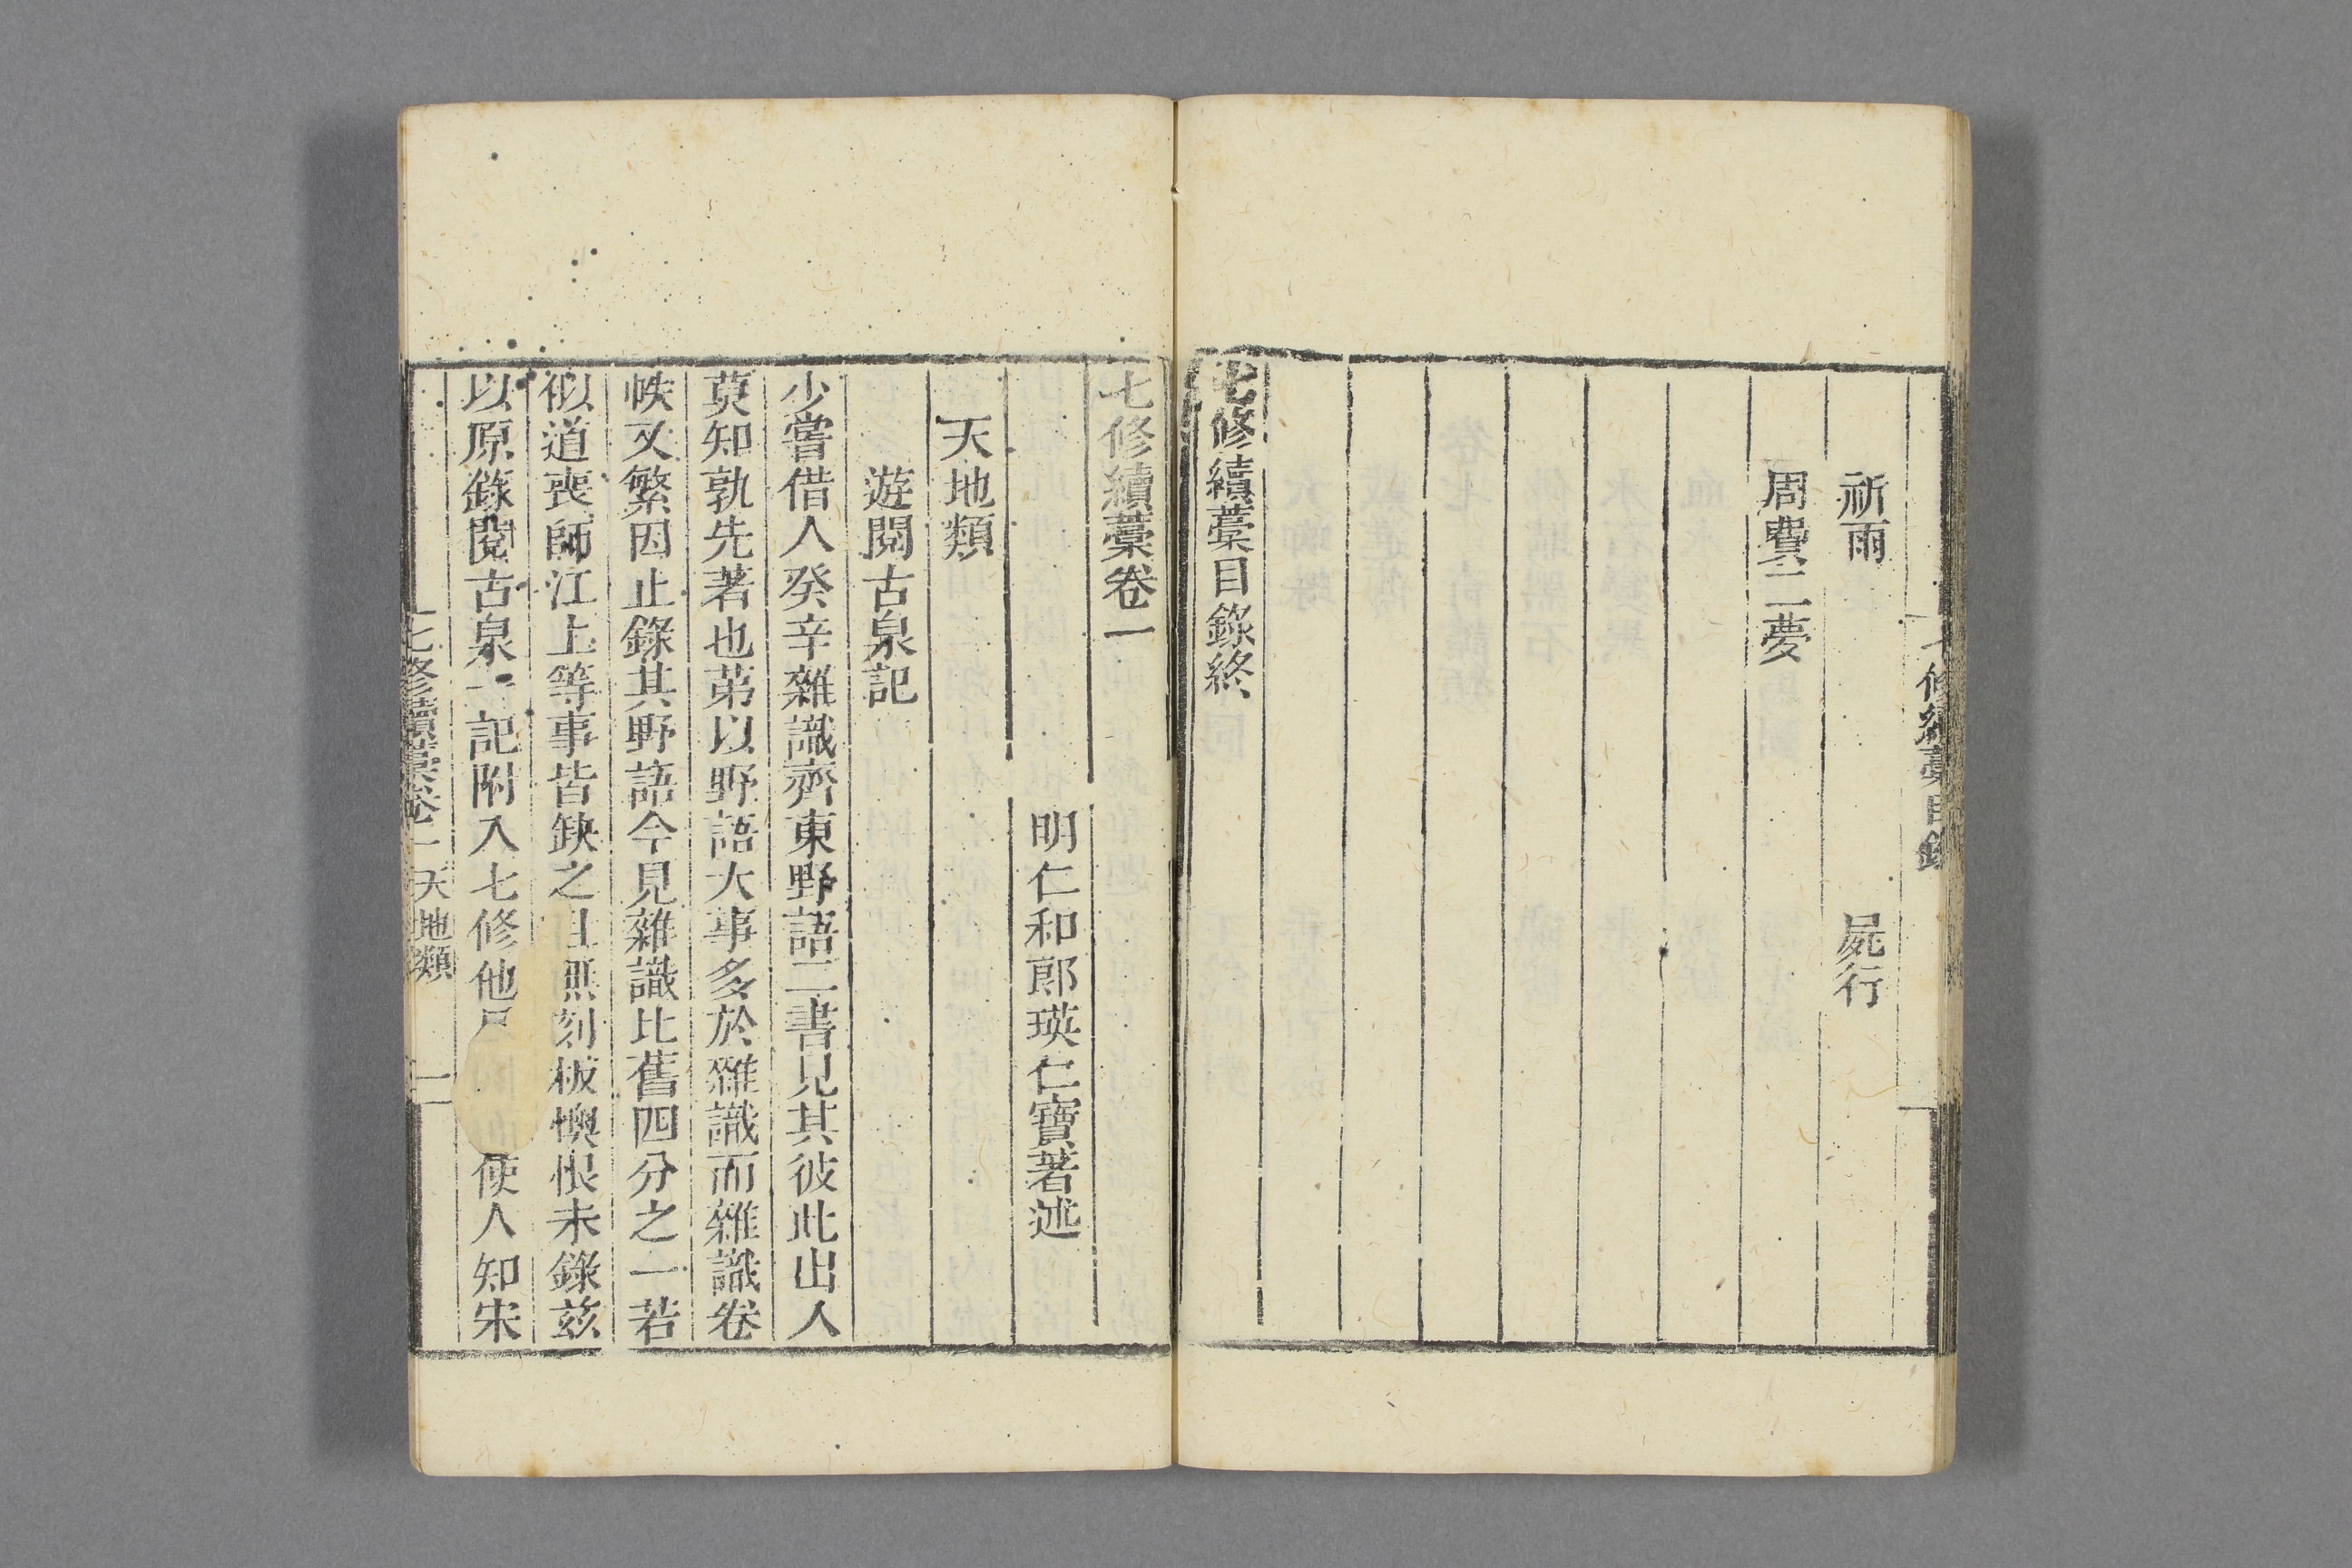 祈雨　屍行
周費二夢
七修續藁目錄終
七修續藁卷一
明仁和郎瑛仁寶著述
天地類
遊閱古泉記
少嘗借人癸辛雜識齊東野語二書見其彼此出人
莫知孰先著也苐以野語大事多於雜識而雜識卷
帙又繁因止錄其野語今見雜識比舊四分之一若
似道喪師江上等事皆缺之且無刻板懊恨未錄茲
以原錄閱古泉一記附入七修他　使人知宋
七修續藁卷一　天地類　一